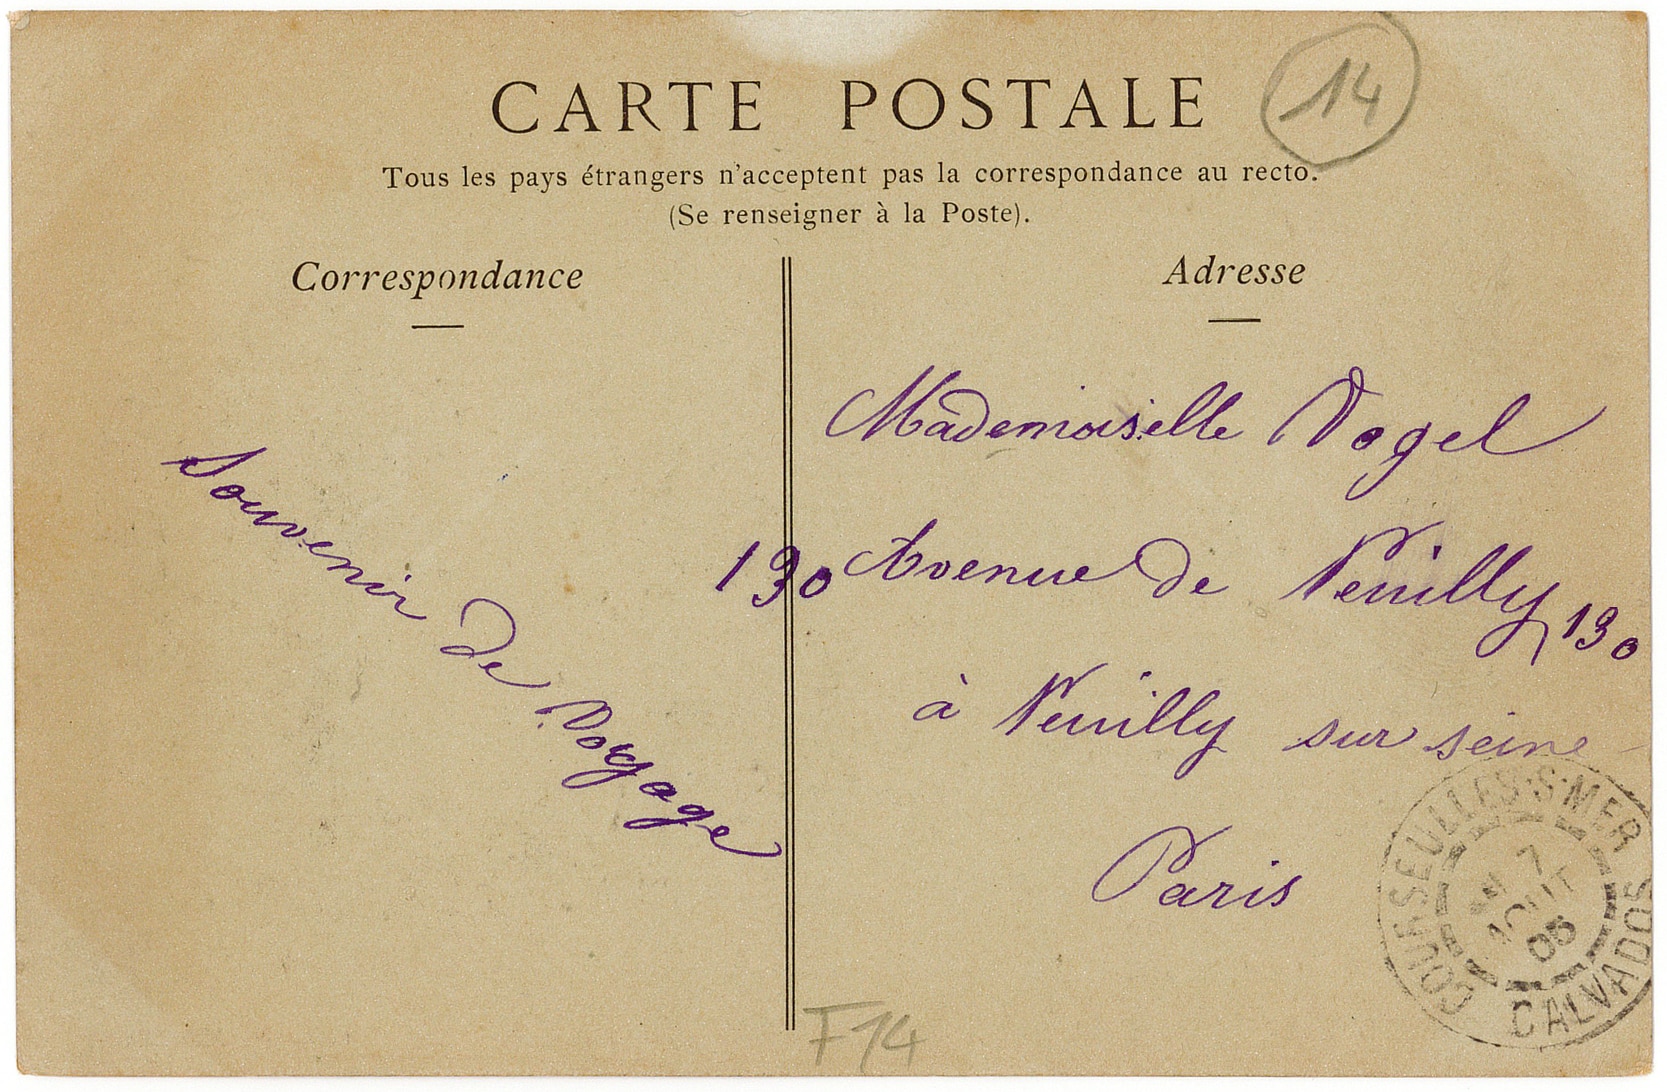 CARTE POSTALE
14
Tous les pays étrangers n'acceptent pas la correspondance au recto.
(Se renseigner à la Poste).
Correspondance
Souvenir de Voyage
Adresse
Mademoiselle Vogel
130 Avenue de Neuilly 130
à Neuilly sur seine
Paris
COURSEULLES-S-MER
7
AOUT
05
CALVADOS
F14